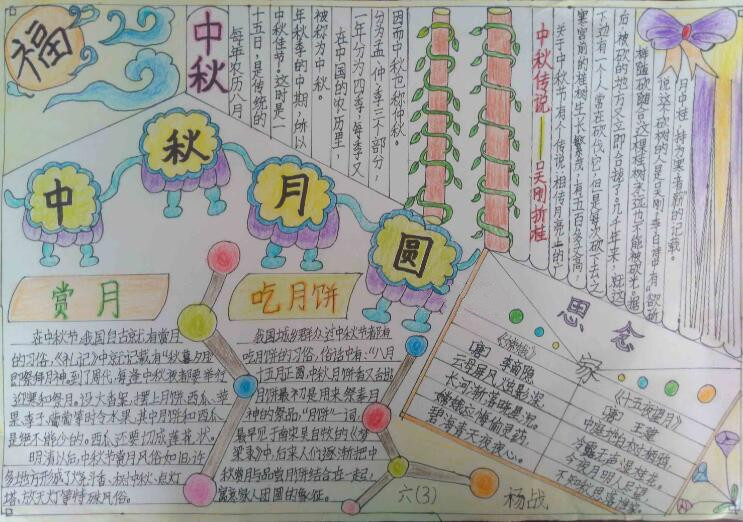 福
中秋
每年农历八月
十五日,是传统的
中秋佳节。这时是一
年秋季的中期,所以
被称为中秋。
在中国的农历里,
一年分为四季,每季又
分为孟、仲、季三个部分,
因而中秋也称仲秋。
中秋传说——吴刚折桂
关于中秋节有个传说:相传月亮上的广
寒宫前的桂树生长繁茂,有五百多丈高,
下边有一个人常在砍伐它,但是每次砍下去之
后,被砍的地方又立即合拢了。几千年来,就这
样随砍随合,这棵桂树永远也不能被砍光。据
说这个砍树的人是吴刚,李白诗中有“欲斫
月中桂,持为寒者薪”的记载。
中
秋
月
圆
赏月
在中秋节,我国自古就有赏月
的习俗,《礼记》中就记载有“秋暮夕月”
即祭拜月神。到了周代,每逢中秋夜都要举行
迎寒和祭月。设大香案,摆上月饼、西瓜、苹
果、李子、葡萄等时令水果,其中月饼和西瓜
是绝不能少的。西瓜还要切成莲花状。
明清以后,中秋节赏月风俗如旧,许
多地方形成了烧斗香、树中秋、点灯
塔、放天灯等特殊风俗。
吃月饼
我国城乡群众过中秋节都有
吃月饼的习俗,俗话中有:“八月
十五月正圆,中秋月饼香又甜”。
月饼最初是用来祭奉月
神的祭品,“月饼”一词,
最早见于南宋吴自牧的《梦
粱录》中,后来人们逐渐把中
秋赏月与品尝月饼结合在一起,
寓意家人团圆的象征。
思念
家
《嫦娥》
【唐】李商隐
云母屏风烛影深,
长河渐落晓星沉。
嫦娥应悔偷灵药,
碧海青天夜夜心。
《十五夜望月》
【唐】王建
中庭地白树栖鸦,
冷露无声湿桂花。
今夜月明人尽望,
不知秋思落谁家。
六(3)
杨战